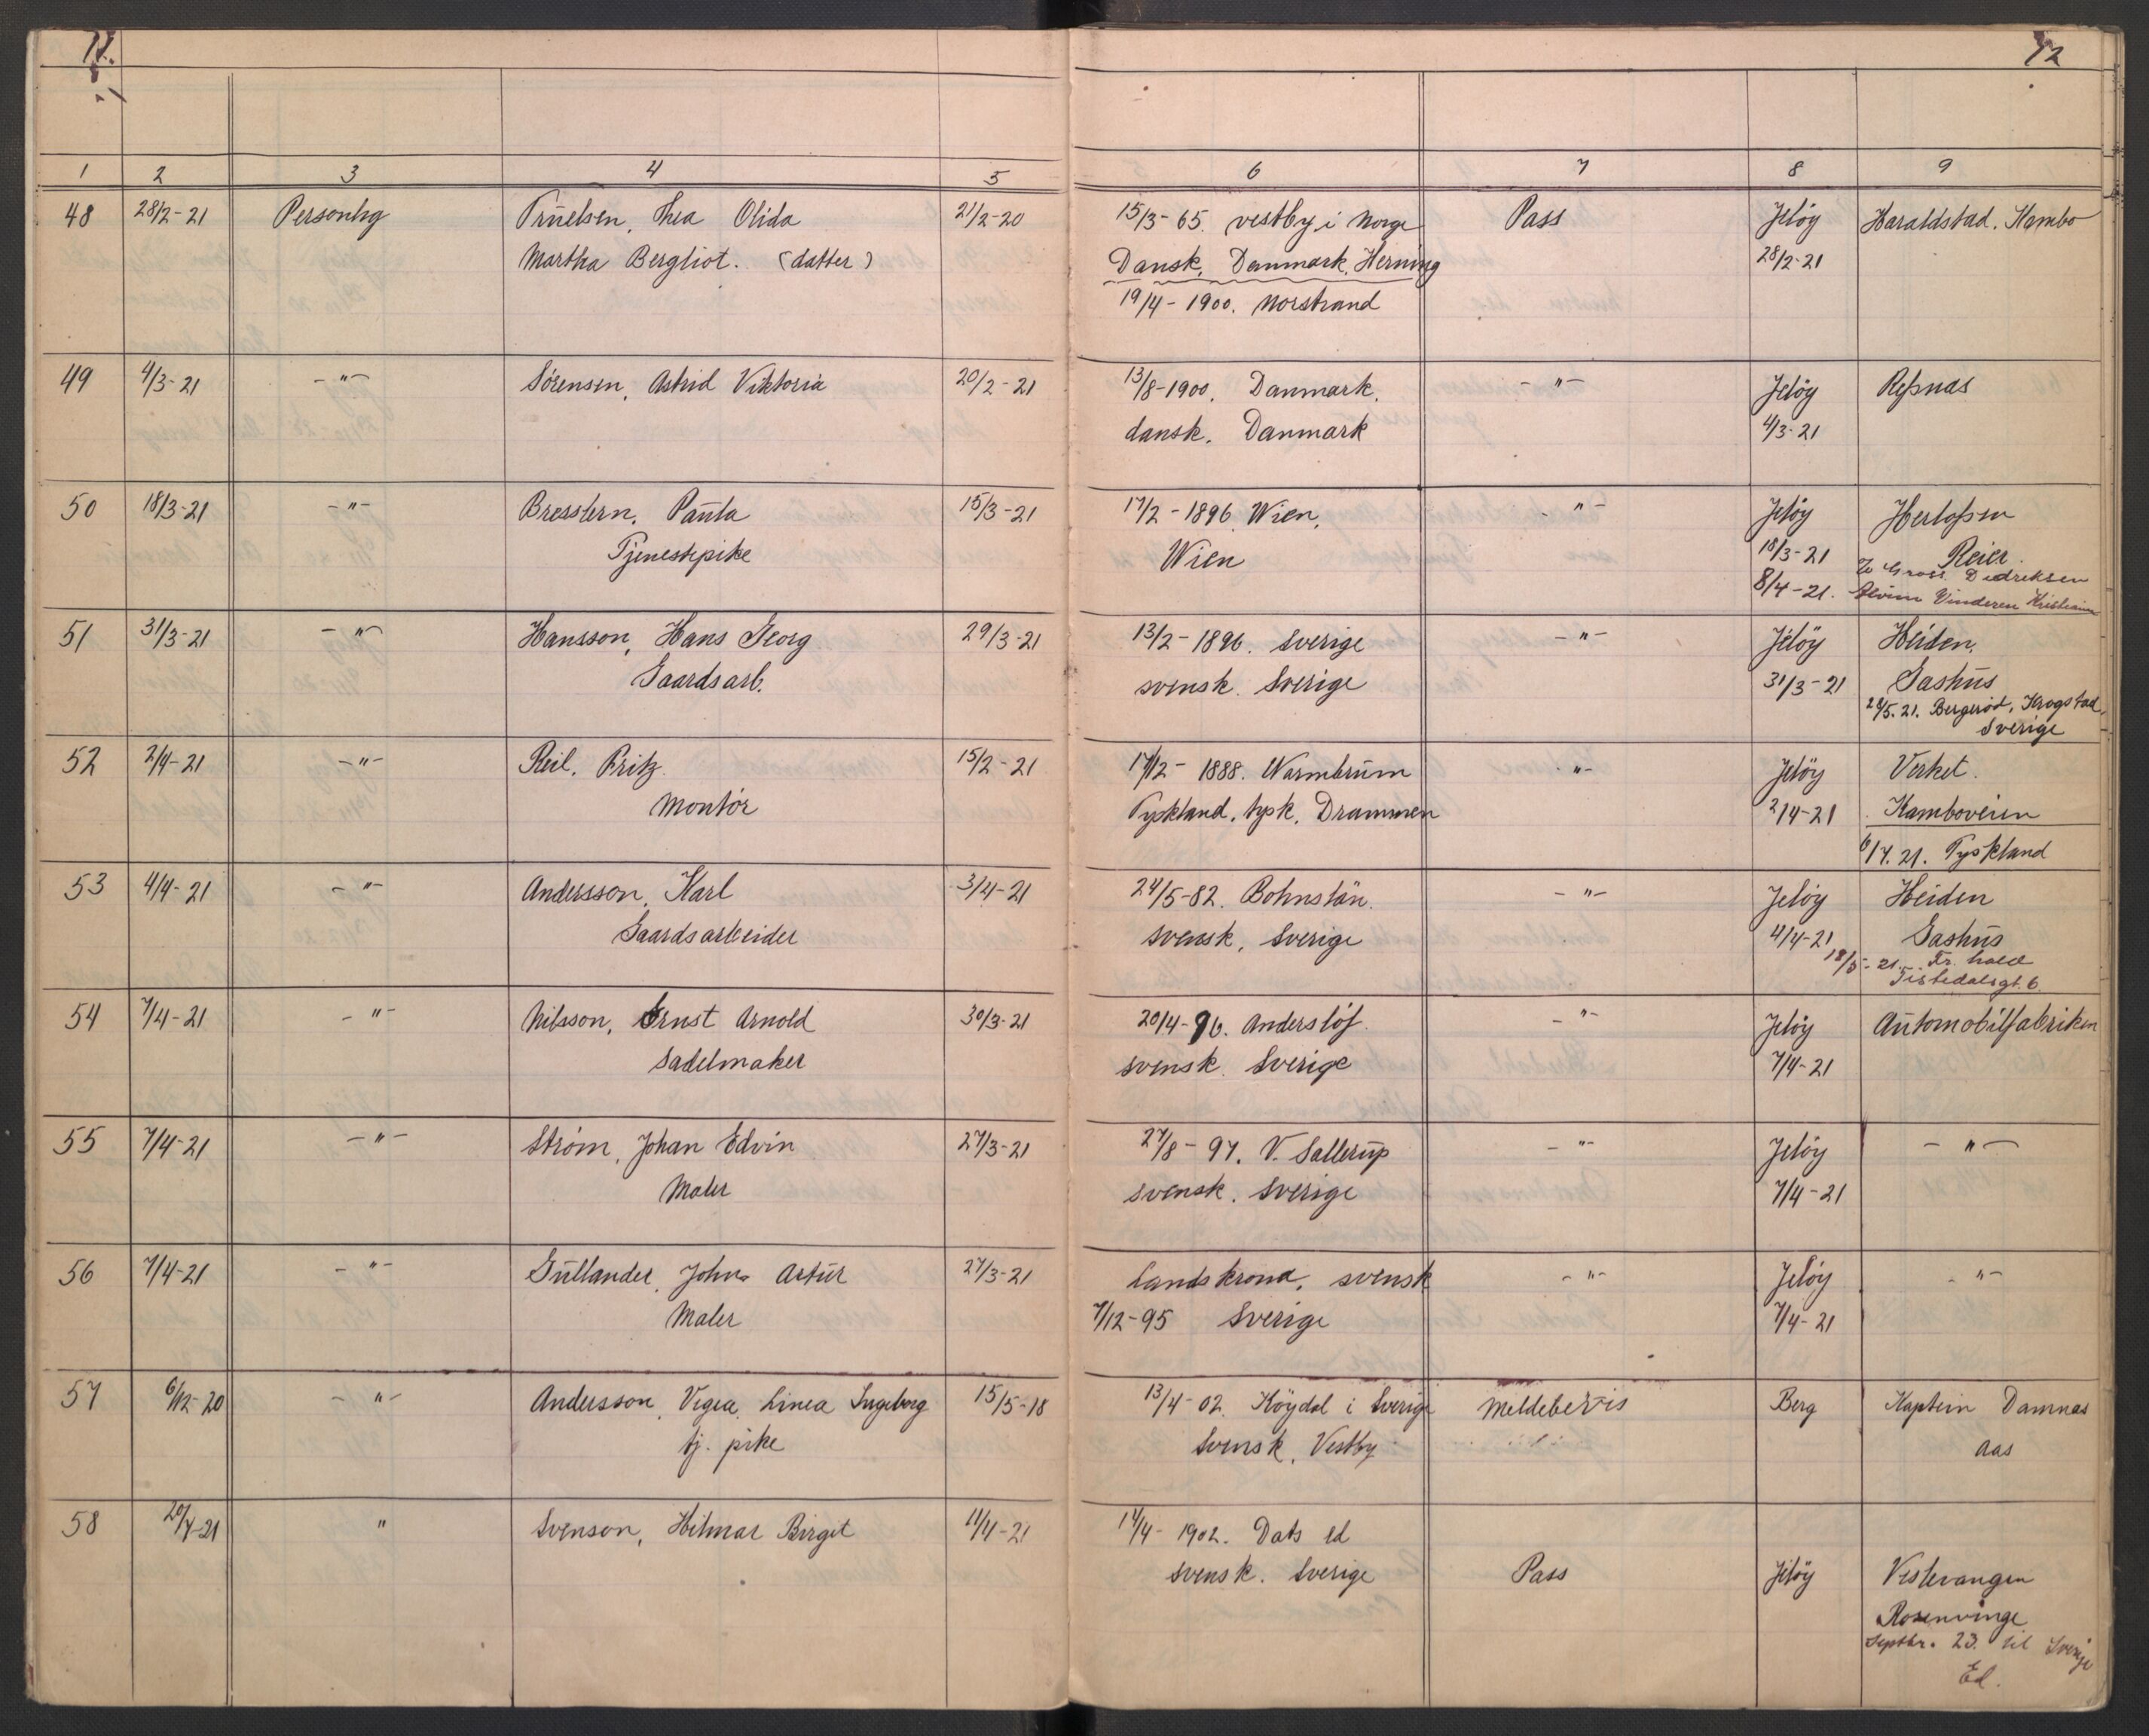 11. 12
1 2 3 4 5 6 7 8 9
48 28/2-21 Personlig Truelsen, Thea Olida 21/2-20 15/3-65. Vestby i Norge Pass Jeløy Haraldstad. Kambo
Martha Bergliot. (datter) Dansk, Danmark, Herning 28/2-21
19/4-1900. Norstrand
49 4/3-21 -"- Sørensen, Astrid Viktoria 20/2-21 13/8-1900. Danmark. -"- Jeløy Refsnæs
dansk. Danmark 4/3-21
50 18/3-21 -"- Bresslern, Paula 15/3-21 17/2-1896 Wien, -"- Jeløy Herlofsen
Tjenestepike Wien 18/3-21 Reier.
8/4-21. Gross. Dedreksen
Vinderen Kristiania
51 31/3-21 -"- Hansson, Hans Georg 29/3-21 13/2-1896. Sverige -"- Jeløy Heiden,
Gaardsarb. svensk. Sverige 31/3-21 Gashus
28/5.21. Bergerød, Krogstad,
Sverige
52 2/4-21 -"- Reil, Fritz 15/2-21 17/12-1888. Warmbrunn -"- Jeløy Verket.
Montør Tyskland, tysk, Drammen 2/4-21 Kamboveien
6/4.21. Tyskland
53 4/4-21 -"- Andersson, Karl 3/4-21 24/5-82. Bohnslän. -"- Jeløy Heiden
Gaardsarbeider svensk, Sverige 4/4-21 Gashus
18/5-21. Fr. hald
Tistedalsgt. 6
54 7/4-21 -"- Nilsson, Ernst Arnold 30/3-21 20/4-96. Anderslöf. -"- Jeløy Automobilfabriken
Sadelmaker svensk. Sverige 7/4-21
55 7/4-21 -"- Strøm, Johan Edvin 27/3-21 27/8-97. V. Sallerup -"- Jeløy -"-
Maler svensk. Sverige 7/4-21
56 7/4-21 -"- Gullander, John Artur 27/3-21 Landskrona, svensk -"- Jeløy -"-
Maler 7/12-95 Sverige 7/4-21
57 6/12-20 -"- Andersson, Vigea Linea Ingeborg 15/5-18 13/4-02. Köydal i Sverige Meldebevis Berg Kaptein Damnæs
tj. pike Svensk, Vestby Aas
58 20/4-21 " Svenson, Hilmar Birgit 11/4-21 14/4-1902. Dals Ed
svensk. Sverige Pass Jeløy Vestevangen
Rosenvinge
Septbr. 23. til Sverige
Ed.